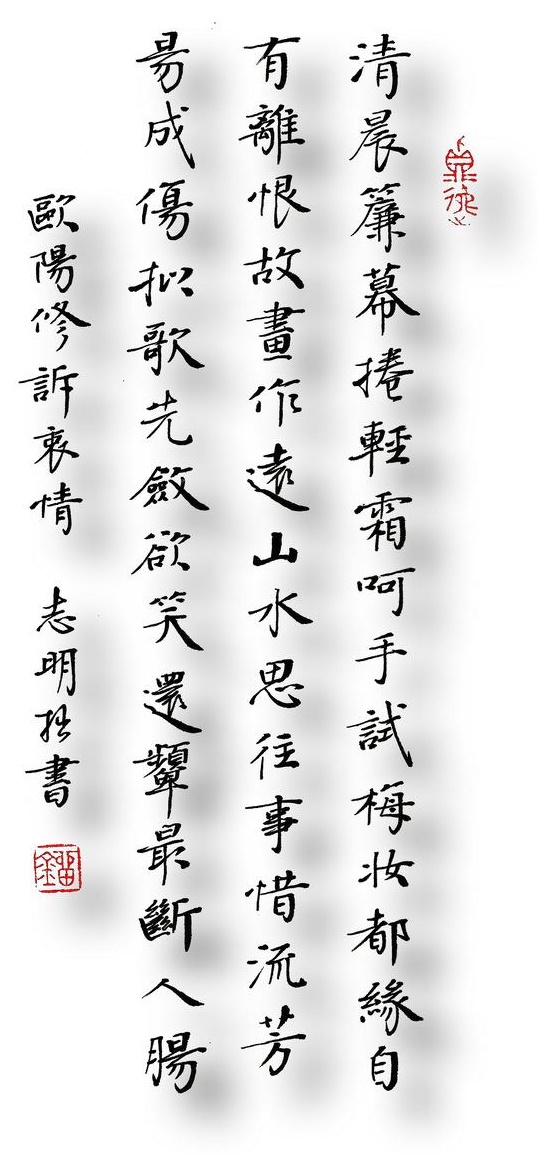 清晨簾幕捲輕霜呵手試梅妆都緣自
有離恨故畫作遠山水思往事惜流芳
易成傷拟歌先斂欲笑還顰最斷人腸
歐陽修訴衷情 志明拙書